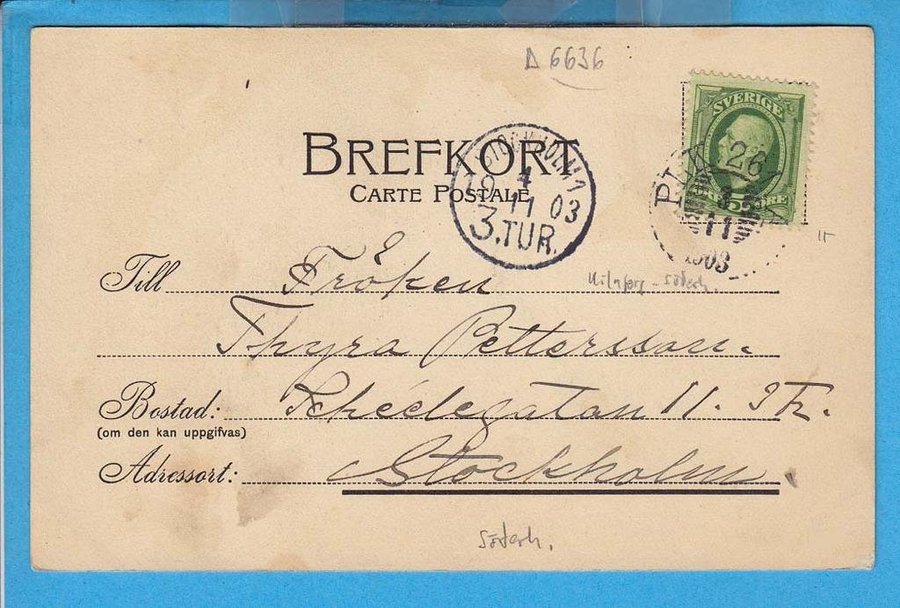 D 6636
SVERIGE
BREFKORT
CARTE POSTALE
STOCKHOLM 1
19 4 03
11
3.TUR.
26
11
1903
Till Fröken
Thyra Pettersson.
Bostad: Scheelegatan 11. 3 tr.
(om den kan uppgifvas)
Adressort: Stockholm.
Söderh.